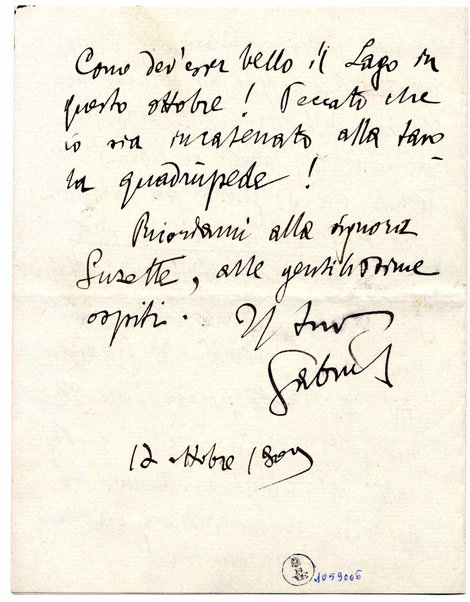 Come dev'esser bello il Lago in
questo ottobre! Peccato che
io sia incatenato alla tavo
la quadrupede!
Ricordami alla signora
Suzette, alle gentilissime
ospiti. Il tuo
Gabriel
12 ottobre
1059006